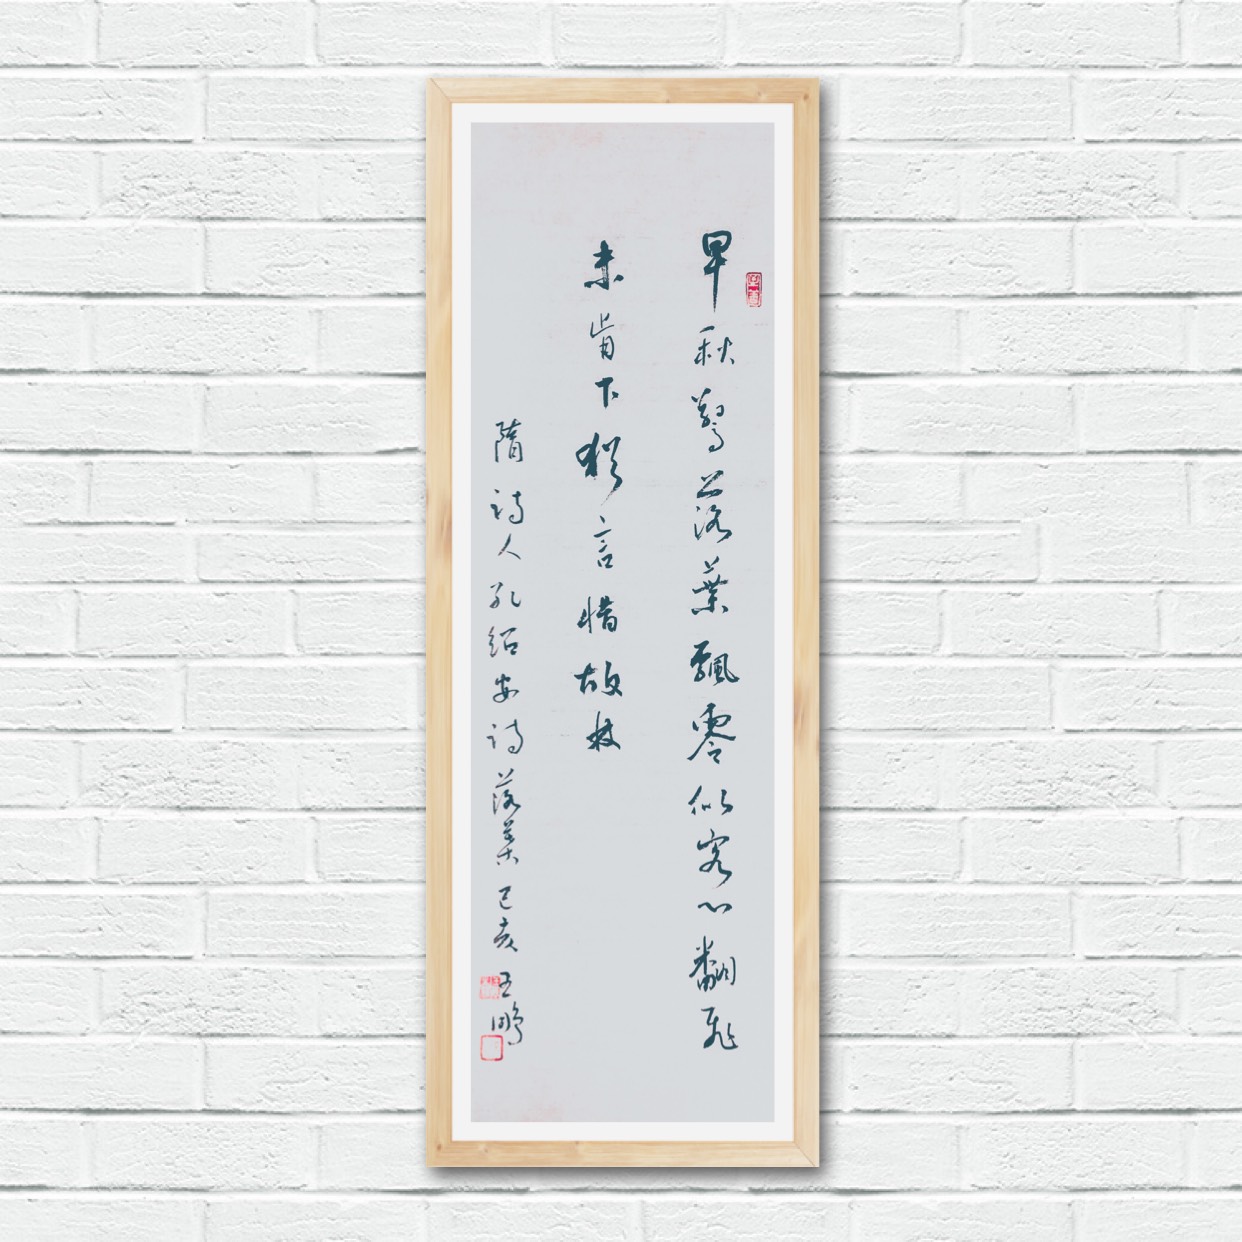 早秋驚落葉飄零似客心翻飛
未肯下猶言惜故林
隋詩人孔紹安詩落葉己亥王鵬